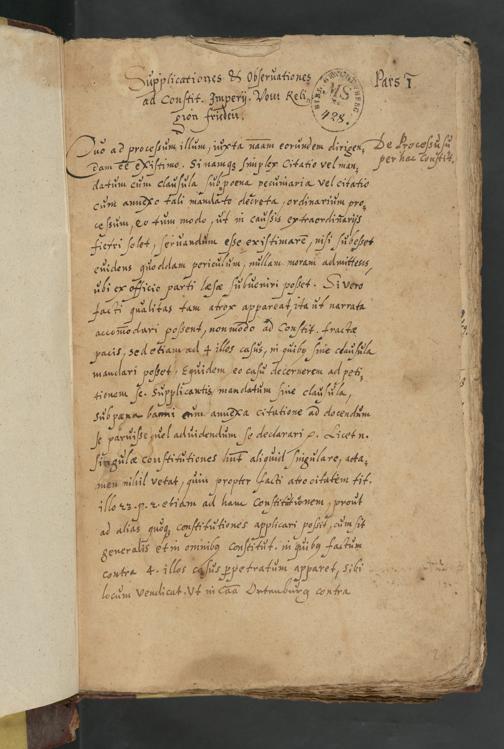 Supplicationes & Observationes
ad Constit. Imperij. Vom Reli
gion frieden.
Pars I
MS
428.
De Processu su
per hac Constit.
Quo ad processum illum, iuxta naam eorundem dirigen,
dam eē existimo. Si namq simplex Citatio vel man,
datum cum clausula sub poena pecuniaria vel citatio
cum annexo tali mandato decreta, ordinarium pro,
cessum, eo tum modo, ut in causis extraordinarijs
fieri solet, servandum esse existimarē, nisi subesset
evidens quoddam periculum, nullam moram admittens,
ubi ex officio parti laesae subveniri posset. Si vero
facti qualitas tam atrox appareat, ita ut narrata
accōmodari possent, non modo ad Constit. fractae
pacis, sed etiam ad 4 illos casus, in quibq sine clausula
mandari posset, Equidem eo casu decernerem ad peti,
tionem se. Supplicantis mandatum sine clausula,
sub poena banni cum annexa citatione ad docendum
se paruisse, vel ad videndum se declarari p. Licet n.
singulae constitutiones hnt aliquid singulare, atta,
men nihil vetat, quin propter facti atrocitatem tit.
illo 23. p. 2. etiam ad hanc Constitutionem, prout
ad alias quoq constitutiones applicari possit, cum sit
generalis et in omnibq constitut. in quibq factum
contra 4. illos casus perpetratum apparet, sibi
locum vendicat. Ut in Caā Ortenburg contra